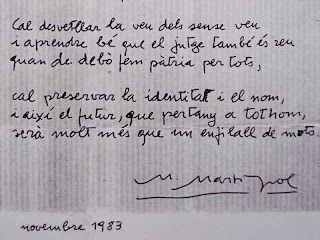 Cal desvetllar la veu dels sense veu
i aprendre bé que el jutge també és reu
quan de debò fem pàtria per tots,
cal preservar la identitat i el nom,
i així el futur, que pertany a tothom,
serà molt més que un enfilall de mots.
M. Martí Pol
novembre 1983